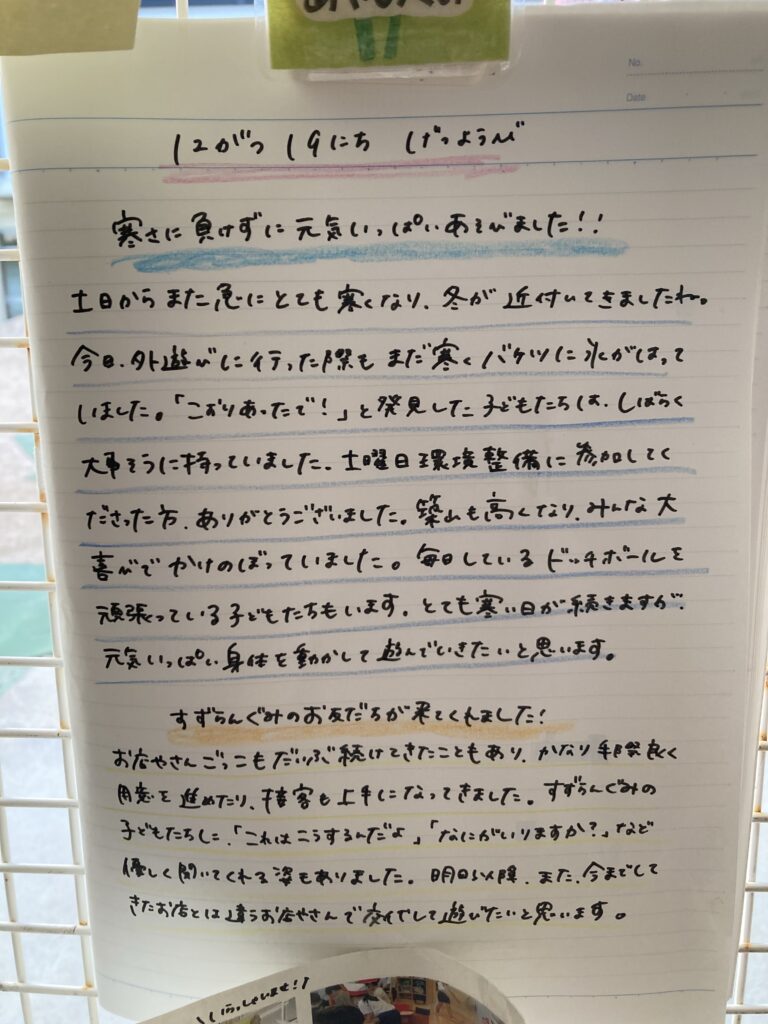 No.
Date
12がつ 19にち げつようび
寒さに負けずに元気いっぱいあそびました!!
土日からまた急にとても寒くなり、冬が近付いてきましたね。
今日、外遊びに行った際もまだ寒くバケツに氷がはって
いました。「こおりあったで!」と発見した子どもたちは、しばらく
大事そうに持っていました。土曜日環境整備に参加してく
ださった方、ありがとうございました。築山も高くなり、みんな大
喜びでかけのぼっていました。毎日しているドッチボールを
頑張っている子どもたちもいます。とても寒い日が続きますが、
元気いっぱい身体を動かして遊んでいきたいと思います。
すずらんぐみのお友だちが来てくれました!
お店やさんごっこもだいぶ続けてきたこともあり、かなり手際良く
用意を進めたり、接客も上手になってきました。すずらんぐみの
子どもたちに、「これはこうするんだよ」「なにがいりますか?」など
優しく聞いてくれる姿もありました。明日以降、また、今までして
きたお店とは違うお店やさんで交代して遊びたいと思います。
いらっしゃいませ!